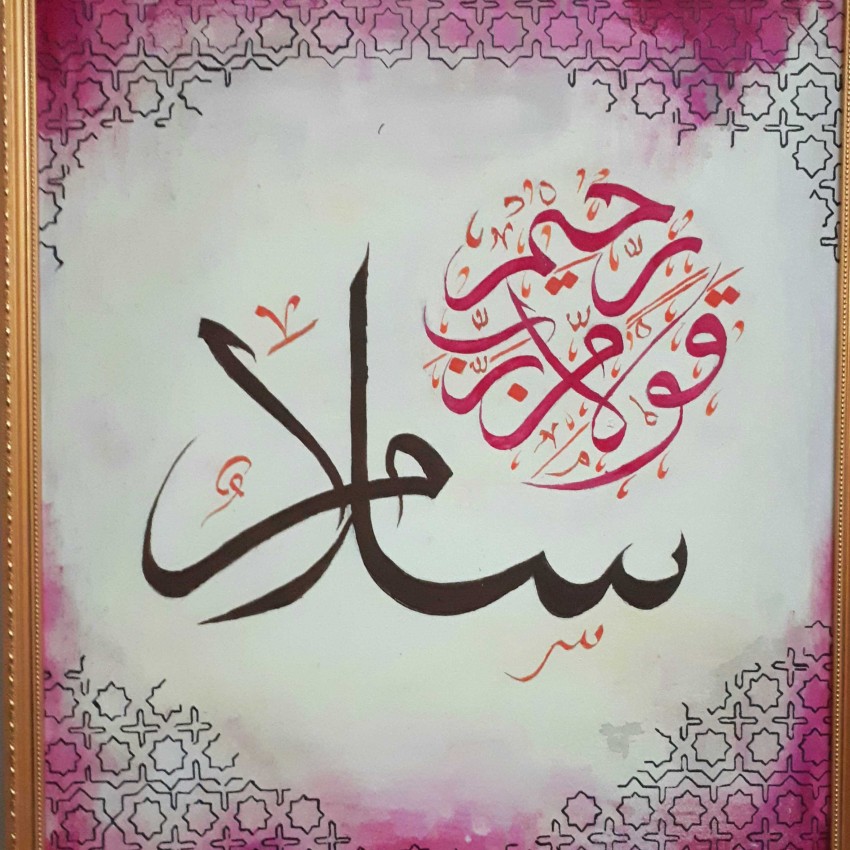 سلام
قولا من رب رحيم